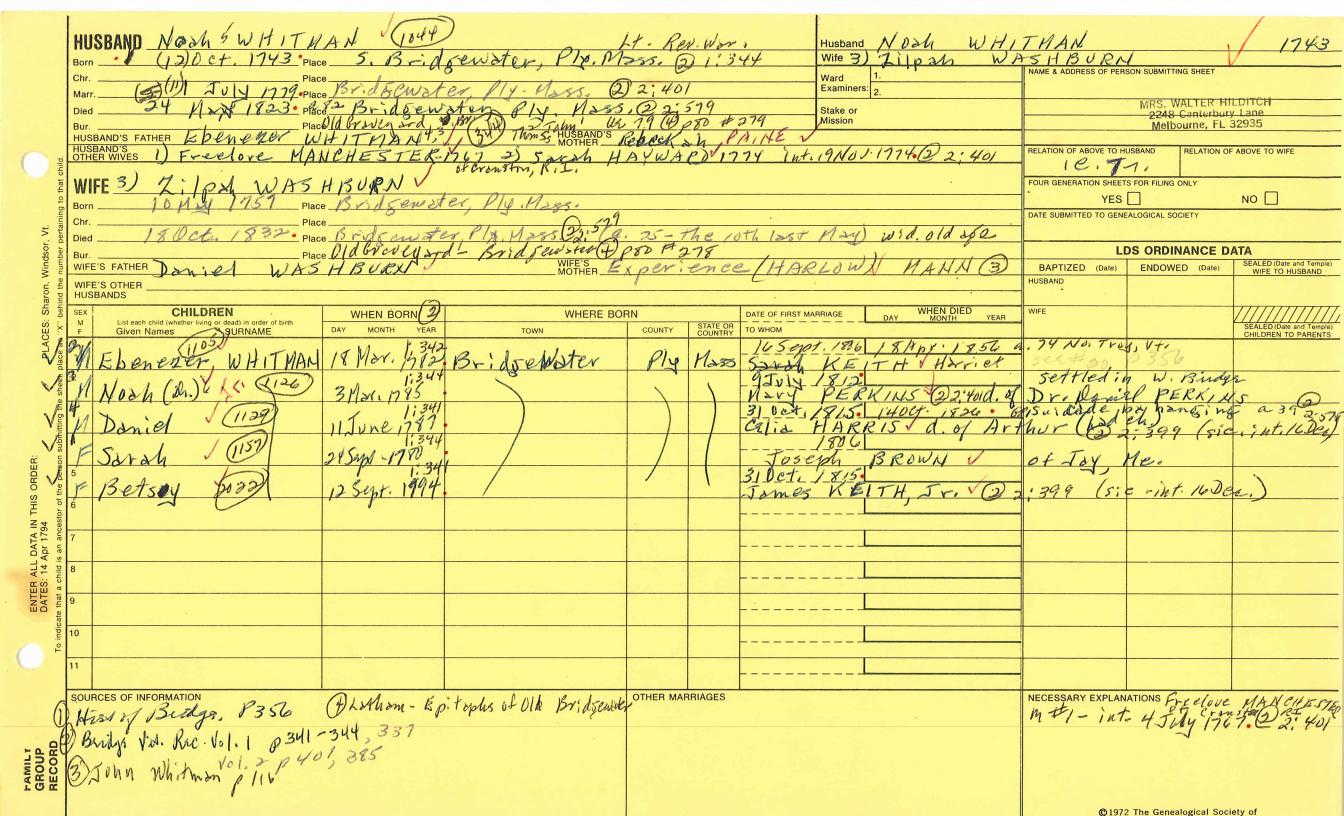 HUSBAND Noah⁵ WHITMAN 1044 Lt. Rev. War.
Born (12) Oct. 1743 Place S. Bridgewater, Ply. Mass. ② 1:344
Chr. Place
Marr. (11) July 1779 Place Bridgewater, Ply. Mass. ② 2:401
Died 24 1823 Place Bridgewater Ply, Mass. ② 2:579
Bur. Place Old Graveyard, ④ p80 #279
HUSBAND'S FATHER Ebenezer WHITMAN 4,3 344 HUSBAND'S MOTHER PAINE
HUSBAND'S OTHER WIVES 1) Freelove MANCHESTER 1767 2) Sarah HAYWARD 1774 int. 19 Nov. 1774 ② 2:401
of Cranston, R.I.
WIFE 3) Zilpah WASHBURN
Born 10 May 1757 Place Bridgewater, Ply. Mass.
Chr. Place
Died 18 Oct. 1832 Place Bridgewater, Ply, Mass ② 2:579 (a. 25 - the 10th last May) wid. old age
Bur. Place Old Graveyard - Bridgewater ④ p80 #278
WIFE'S FATHER Daniel WASHBURN WIFE'S MOTHER Experience (HARLOW) MANN ③
WIFE'S OTHER HUSBANDS
Husband Noah WHITMAN 1743
Wife 3) Zilpah WASHBURN
Ward Examiners: 1.
2.
Stake or Mission
NAME & ADDRESS OF PERSON SUBMITTING SHEET
MRS. WALTER HILDITCH
2248 Canterbury Lane
Melbourne, FL 32935
RELATION OF ABOVE TO HUSBAND RELATION OF ABOVE TO WIFE
FOUR GENERATION SHEETS FOR FILING ONLY
YES NO
DATE SUBMITTED TO GENEALOGICAL SOCIETY
LDS ORDINANCE DATA
BAPTIZED (Date) ENDOWED (Date) SEALED (Date and Temple) WIFE TO HUSBAND
HUSBAND
WIFE
SEALED (Date and Temple) CHILDREN TO PARENTS
SEX M F
CHILDREN
List each child (whether living or dead) in order of birth
Given Names SURNAME
WHEN BORN ②
DAY MONTH YEAR
WHERE BORN
TOWN COUNTY STATE OR COUNTRY
DATE OF FIRST MARRIAGE
TO WHOM
WHEN DIED
DAY MONTH YEAR
1105 1:342 16 Sept. 1826 18 Apr. 1856 a. 74 No. Troy, Vt.
M Ebenezer WHITMAN 18 Mar. 1782 Bridgewater Ply Mass Sarah KEITH Harriet
1:344 9 July 1812 settled in W. Bridge
M Noah (Dr.) 6 1126 3 Mar. 1785 Mary PERKINS ② 2:401 d. of Dr. Daniel PERKINS
4 1:341 31 Oct. 1815 14 Oct. 1826 Suicide by hanging a 39 ② 2:578
M Daniel 1129 11 June 1787 Celia HARRIS d. of Arthur ② 2:399 (sic. int. 16 Dec)
1:344 1806
F Sarah 1157 Joseph BROWN of Jay, Me.
5 1:341 31 Oct. 1815
F Betsey 12 Sept. 1994 James KEITH, Jr. ② 2:399 (sic - int. 16 Dec.)
6
7
8
9
10
11
SOURCES OF INFORMATION
① Hist of Bridge. P356 ④ Latham - Epitaphs of Old Bridgewater
② Bridge Vit. Rec. Vol. 1 p 341-344, 337
Vol. 2 p 401, 385
③ John Whitman p 116
OTHER MARRIAGES
NECESSARY EXPLANATIONS Freelove MANCHESTER
m #1 - int - 4 July 1767. ② 2:401
©1972 The Genealogical Society of
ENTER ALL DATA IN THIS ORDER:
DATES: 14 Apr 1794
PLACES: Sharon, Windsor, Vt.
To indicate that a child is an ancestor of the person submitting the sheet, place an "X" behind the number pertaining to that child.
FAMILY GROUP RECORD